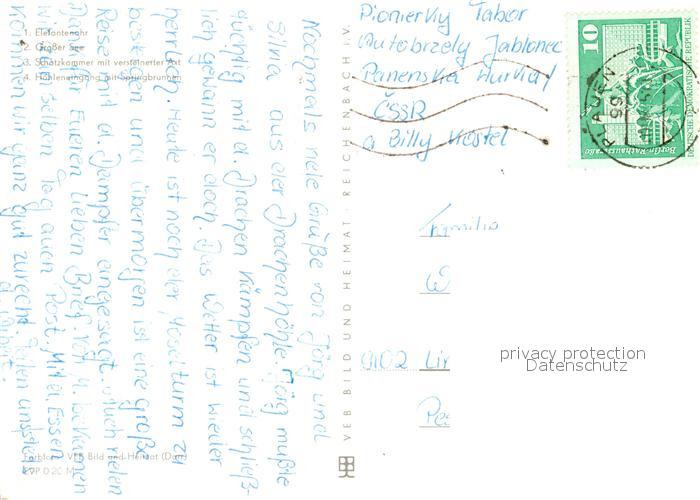 1. Elefantenohr
2. Großer See
3. Schatzkammer mit versteinerter Axt
4. Höhleneingang mit Springbrunnen
Nochmals viele Grüße von Jörg und
Silvia aus der Drachenhöhle. Jörg mußte
tüchtig mit d. Drachen kämpfen und schließ-
lich gewann er doch. Das Wetter ist wieder
herrlich. Heute ist noch der
und übermorgen ist eine große
Reise mit d. Dampfer eingesagt. Auch vielen
Dank für Eueren lieben Brief.
Wir am selben Tag auch Post. Mit d. Essen
kommen wir ganz gut zurecht.
Farbfoto: VEB Bild und Heimat (Darr)
EVP 0,20 M
VEB BILD UND HEIMAT REICHENBACH i.V.
Pionierky Tabor
Autobrzely Jablonec
Panenska
ČSSR
a Billy Kostel
Familie
W
9102 Lim
Pe
10
DEUTSCHE DEMOKRATISCHE REPUBLIK
Berlin-Rathausstraße
PLAUEN
99
privacy protection
Datenschutz